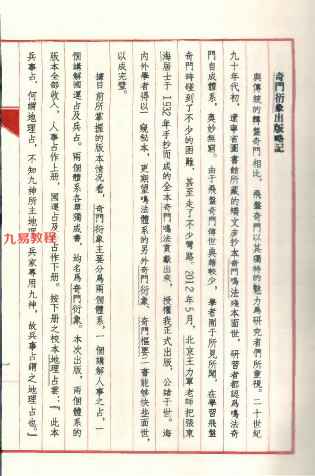 奇門衍象出版略記
與傳統的轉盤奇門相比，飛盤奇門以其獨特的魅力爲研究者們所重視。二十世紀
九十年代初，遼寧省圖書館所藏的矯文彦抄本奇門鳴法殘本面世，研習者都認爲鳴法奇
門自成體系，奧妙無窮。由于飛盤奇門傳世典籍較少，學者囿于所見所聞，在學習飛盤
奇門時碰到了不少的困難，甚至走了不少彎路。2012年5月，北京王力軍老師把張東
海居士于1932年手抄而成的全本奇門鳴法貢獻出來，授權我正式出版，公諸于世。海
内外學者得以一窺秘本，更期望鳴法體系的另外奇門衍象、奇門樞要二書能够快些面世，
以成完璧。
據目前所掌握的版本情况看，奇門衍象主要分爲兩個體系，一個講解人事之占，一
個講解國運占及兵占。兩個體系各單獨成書，均名爲奇門衍象。本次出版，兩個體系的
版本全部收入，人事占作上册，國運占及兵占作下册。按下册之校本地理占云：『此本
兵事占，何謂地理占，不知九神所主地理，兵家專用九神，故兵事占謂之地理占也。』
九易教程